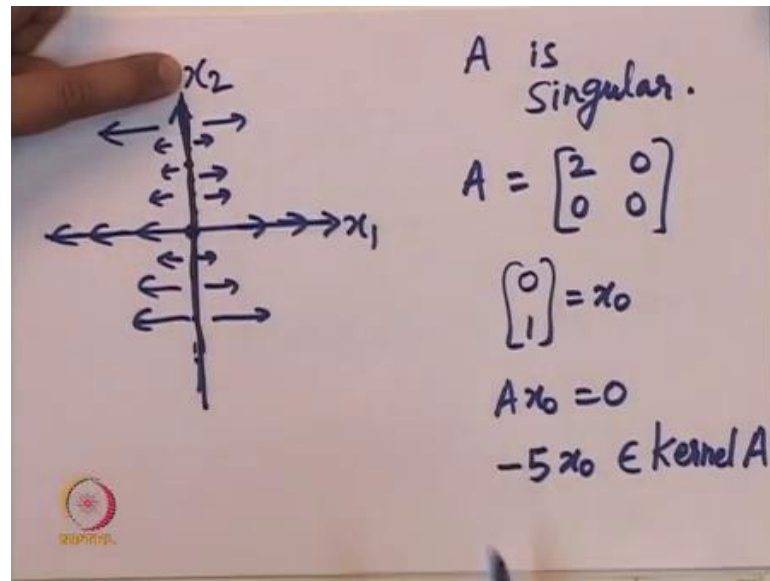 x2
x1
A is
Singular.
A = [2 0
0 0]
[0
1] = x0
Ax0 = 0
-5x0 ∈ Kernel A
NPTEL